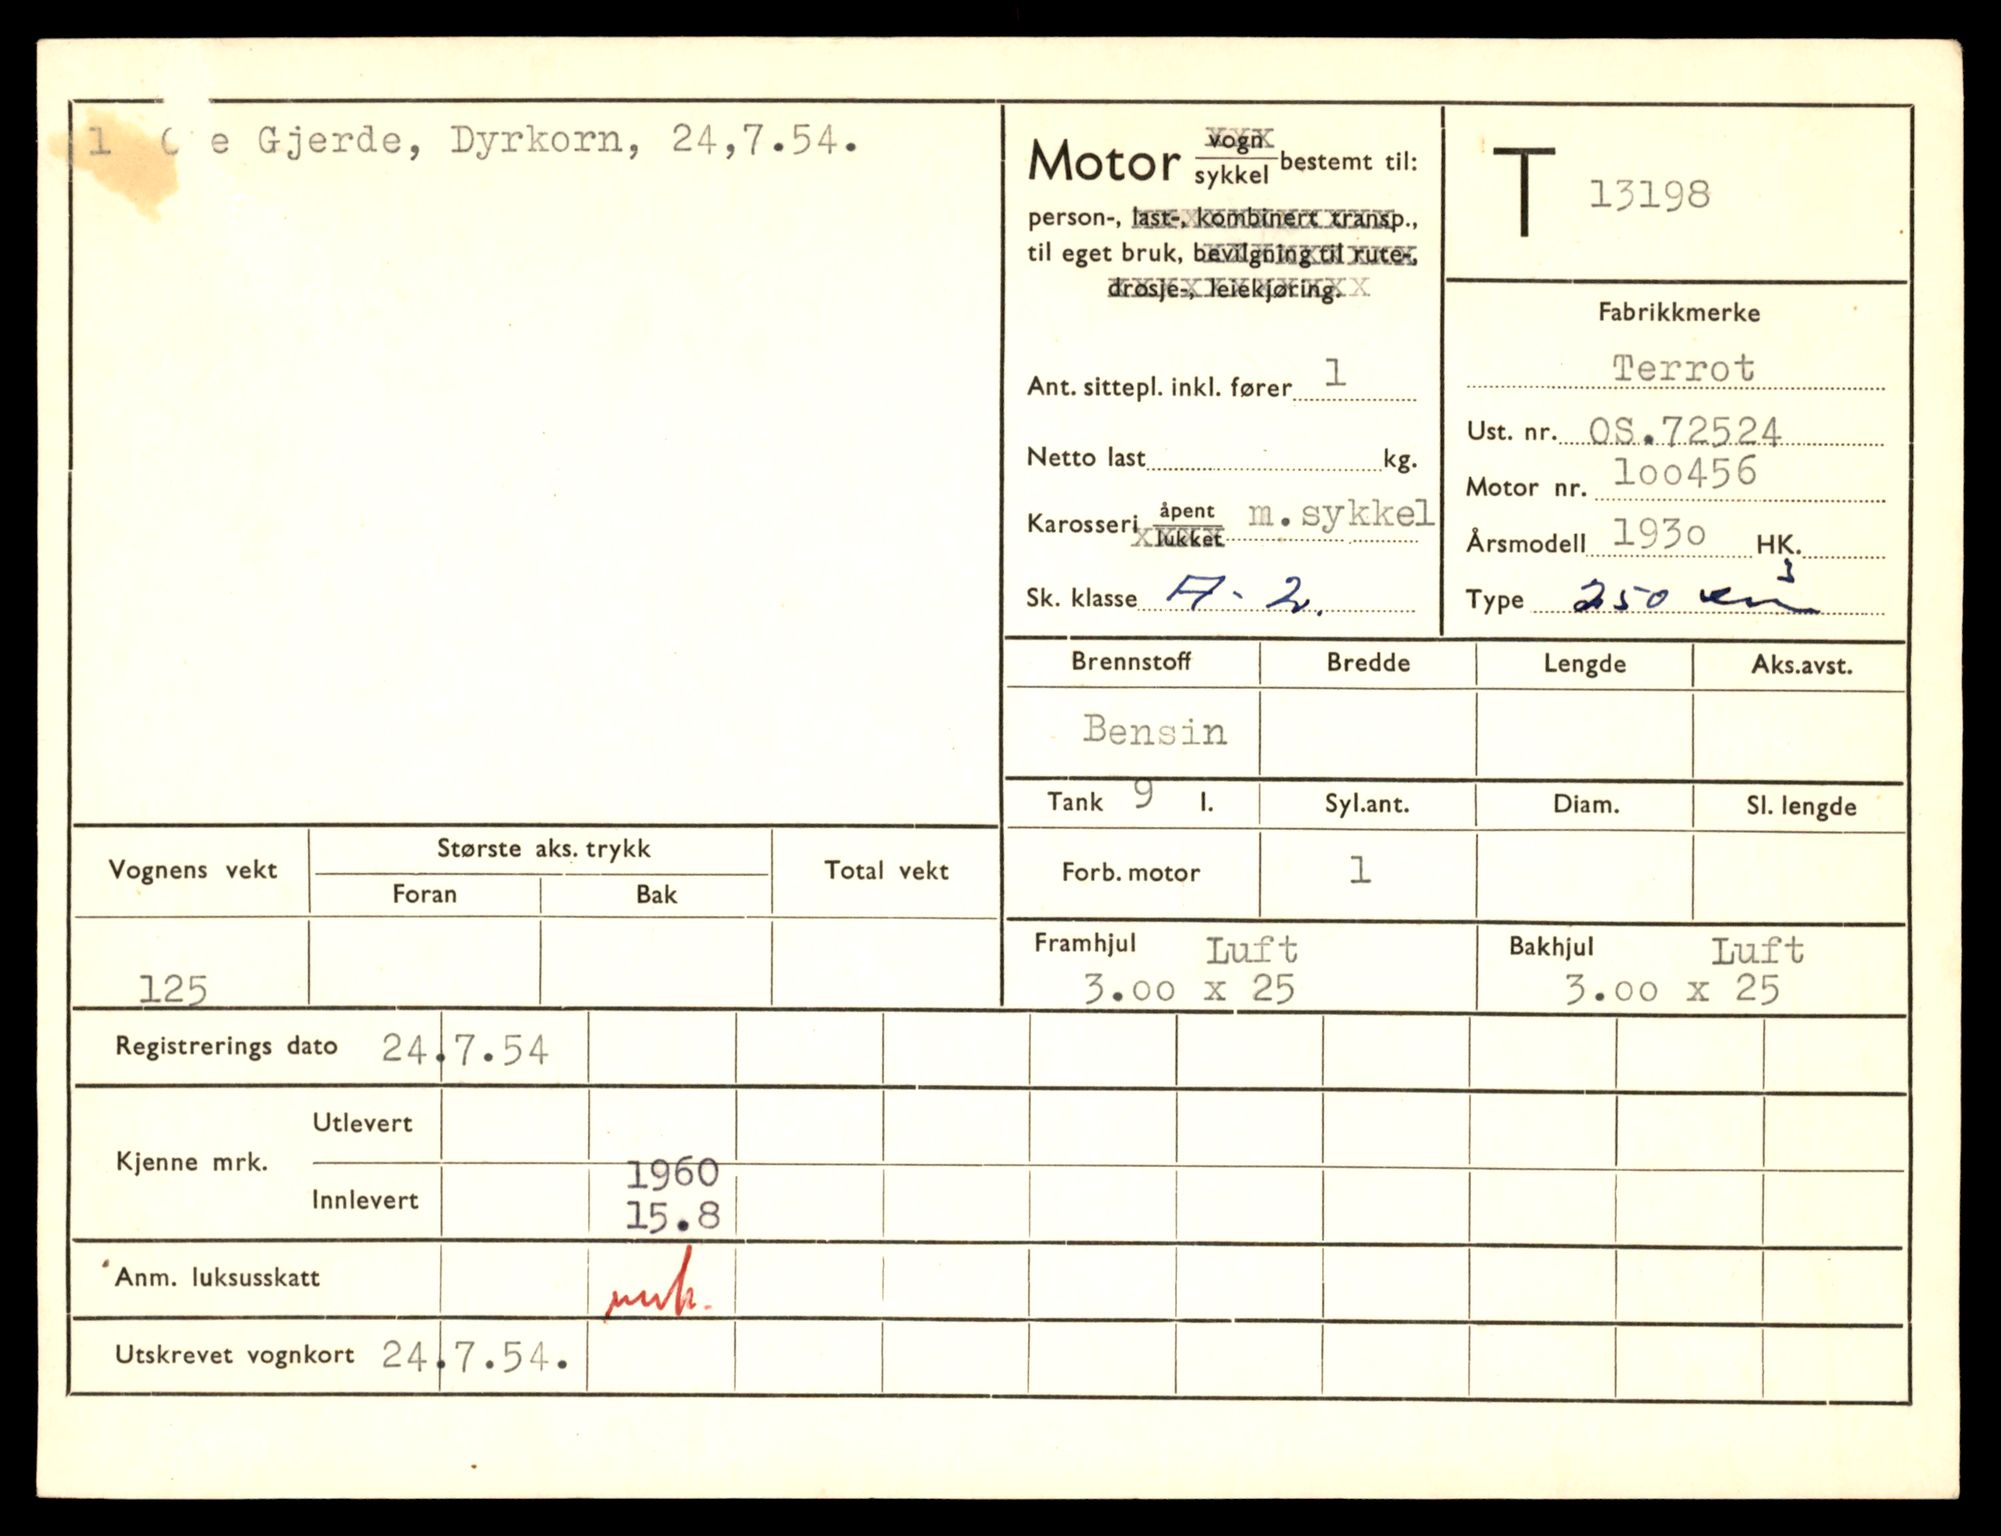 1 Gjerde, Dyrkorn, 24,7.54.
Motor vogn sykkel bestemt til:
person-, last-, kombinert transp.,
til eget bruk, bevilgning til rute-,
drosje-, leiekjøring.
Ant. sittepl. inkl. fører 1
Netto last kg.
Karosseri åpent lukket m.sykkel
Sk. klasse A - 2.
T 13198
Fabrikkmerke
Terrot
Ust. nr. OS.72524
Motor nr. 100456
Årsmodell 1930 HK.
Type 250 cm3
Brennstoff Bredde Lengde Aks.avst.
Bensin
Tank 9 l. Syl.ant. Diam. Sl. lengde
Forb. motor 1
Vognens vekt Største aks. trykk Total vekt
Foran Bak
125
Framhjul Luft Bakhjul Luft
3.00 x 25 3.00 x 25
Registrerings dato 24.7.54
Kjenne mrk. Utlevert
1960
Innlevert 15.8
Anm. luksusskatt
Utskrevet vognkort 24.7.54.